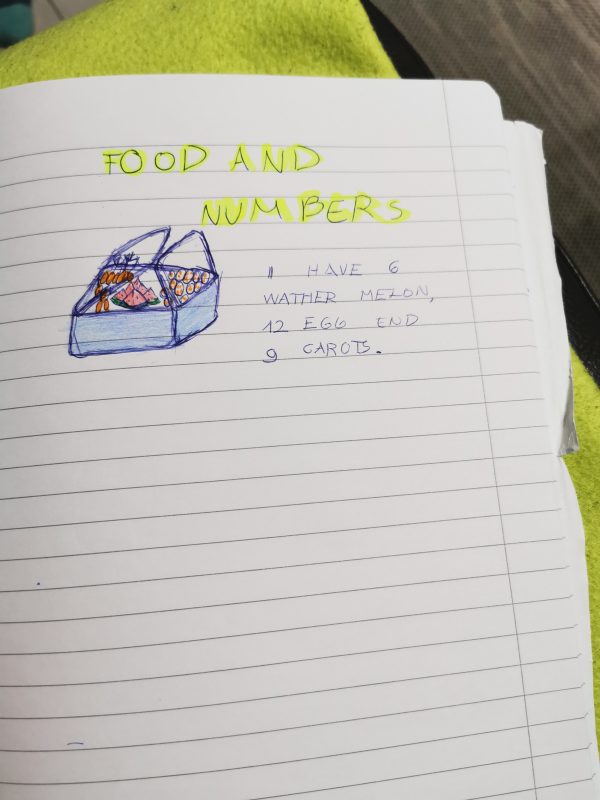 FOOD AND
NUMBERS
I HAVE 6
WATHER MELON,
12 EGG END
9 CAROTS.